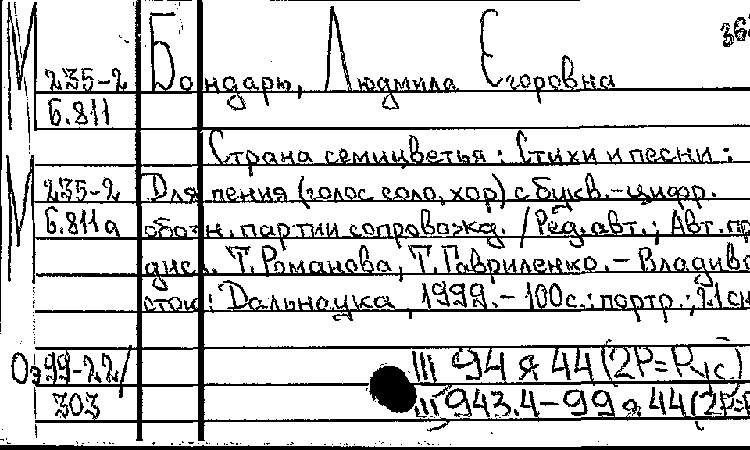 М 235-2 Бондарь, Людмила Егоровна 36
Б.811
Страна семицветья: Стихи и песни:
М 235-2 Для пения (голос соло, хор) с букв.-цифр.
Б.811а обозн. партии сопровожд. / Ред. авт.; Авт. пр
дисл. Т. Романова, Т. Гавриленко. - Владиво
сток: Дальнаука, 1999. - 100 с.: портр.;
99-22/ Ш 94 я 44 (2Р=Рус)
303 943.4-99 я 44 (2Р=